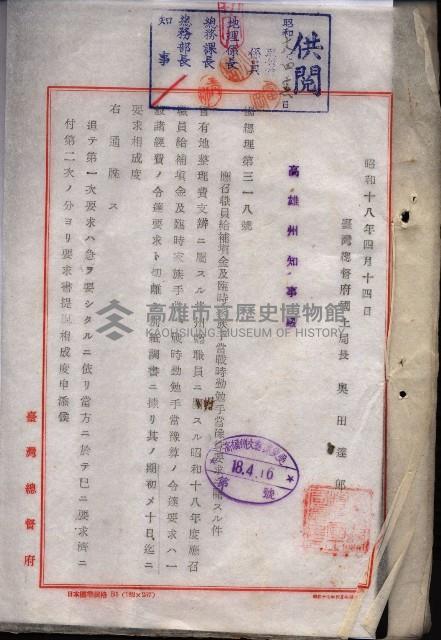 供閱
昭和 四 日
係員
地理係長
總務課長
總務部長
知事
昭和十八年四月十四日
臺灣總督府國土局長 奧田達郎
高雄州知事殿
總理第三一八號
應召職員給補塡金及臨時家族手當戰時勤勉手當 要求 關スル件
官有地整理費支辨ニ屬スル 州廳職員ニ 昭和十八年度應召
職員給補塡金及臨時家族手當 戰時勤勉手當豫算ノ令達要求ハ一
般諸經費ノ令達要求ト切離 別紙調書ニ據リ其ノ期初メ十日 迄ニ
要求相成度
右通牒ス
追テ第一次要求ハ急ヲ要シタルニ依リ當方ニ於テ已ニ要求濟ニ
付第二次ノ分ヨリ要求書提出相成度申添候
18.4.16
號
臺灣總督府
高雄市立歷史博物館
KAOHSIUNG MUSEUM OF HISTORY
日本標準規格 B5 (182×257)